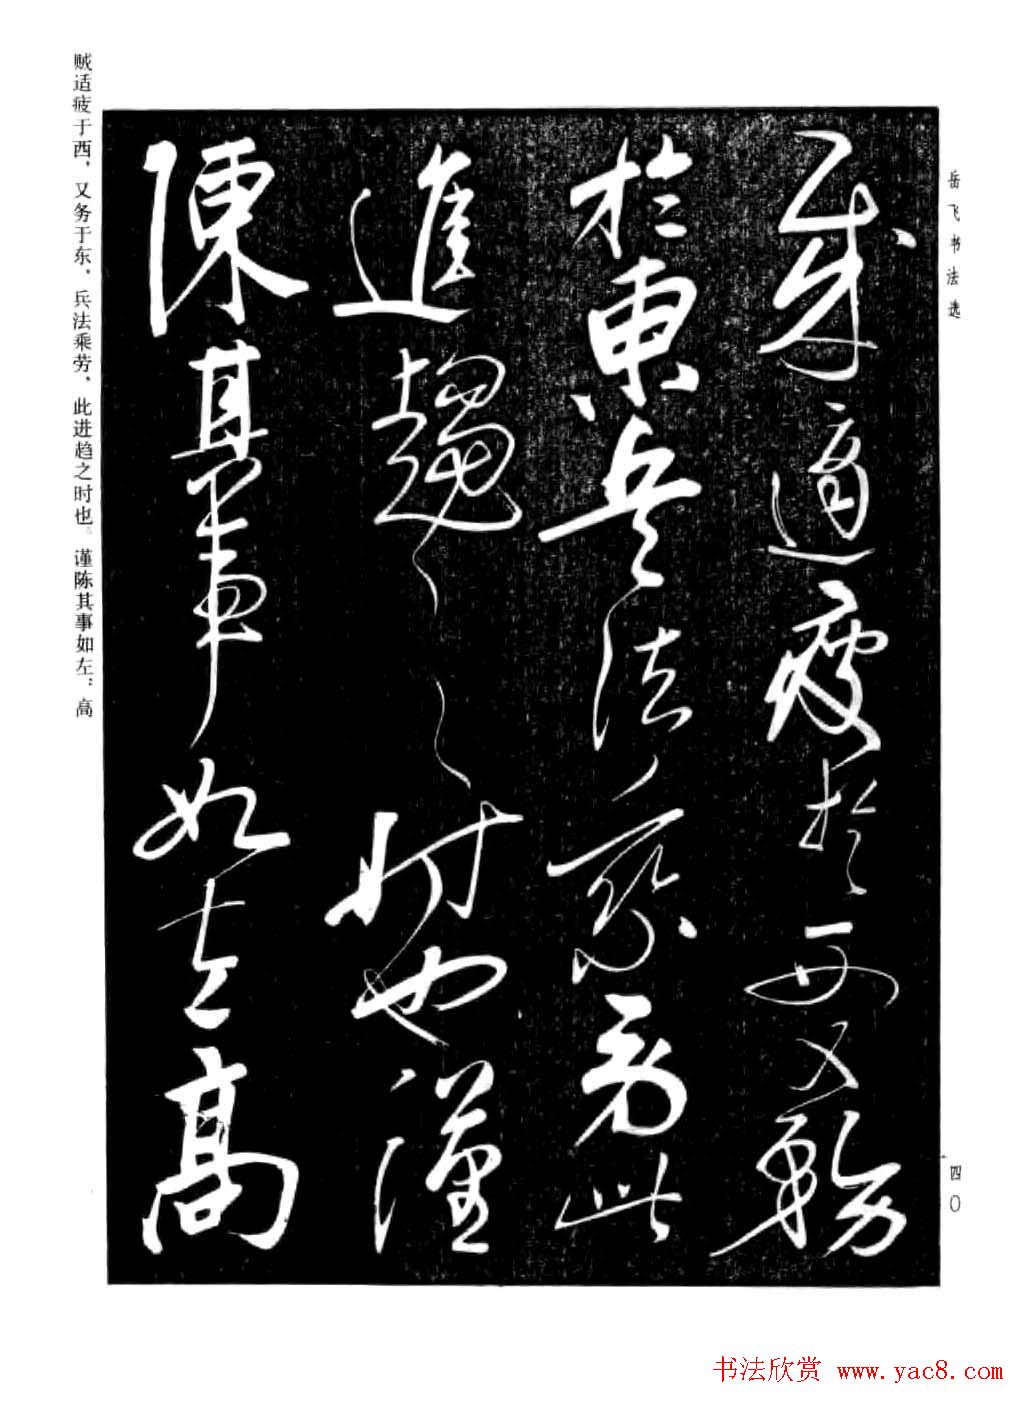 岳飞书法选
賊適疲於西又務
於東兵法乘勞此
進趨之時也謹
陳其事如左高
贼适疲于西，又务于东，兵法乘劳，此进趋之时也。谨陈其事如左：高
四〇
书法欣赏 www.yac8.com